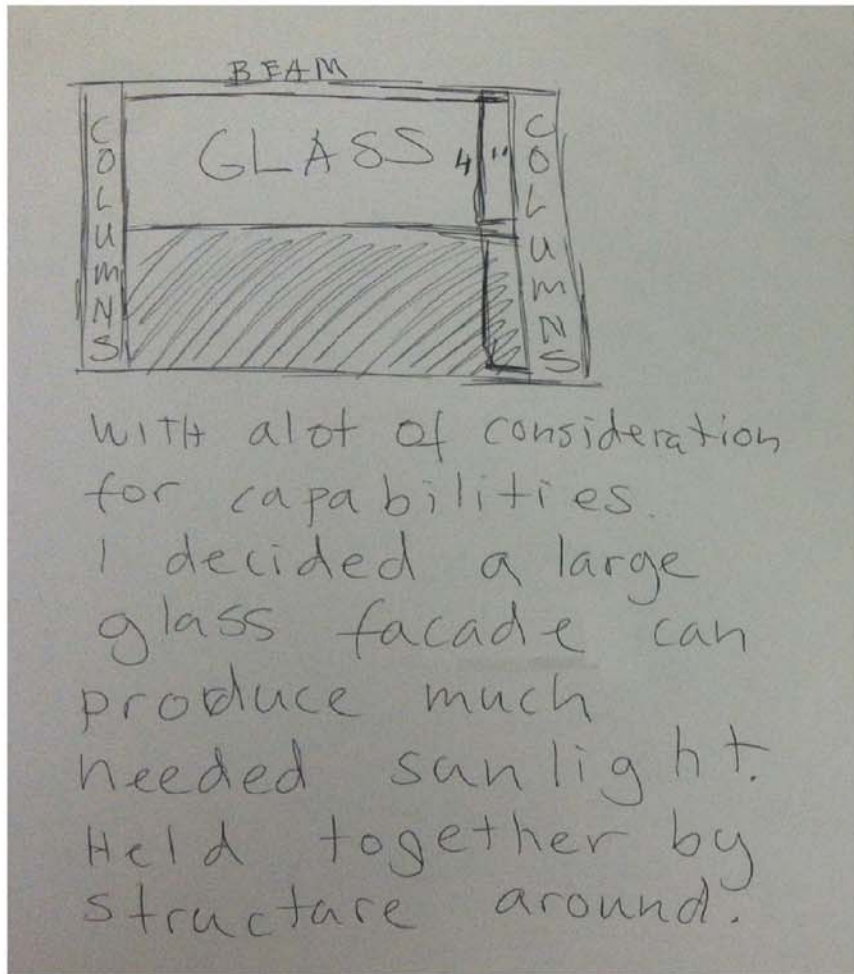 BEAM
COLUMNS
GLASS
4"
COLUMNS
WITH alot of consideration
for capabilities.
I decided a large
glass facade can
produce much
needed sunlight.
Held together by
structure around.